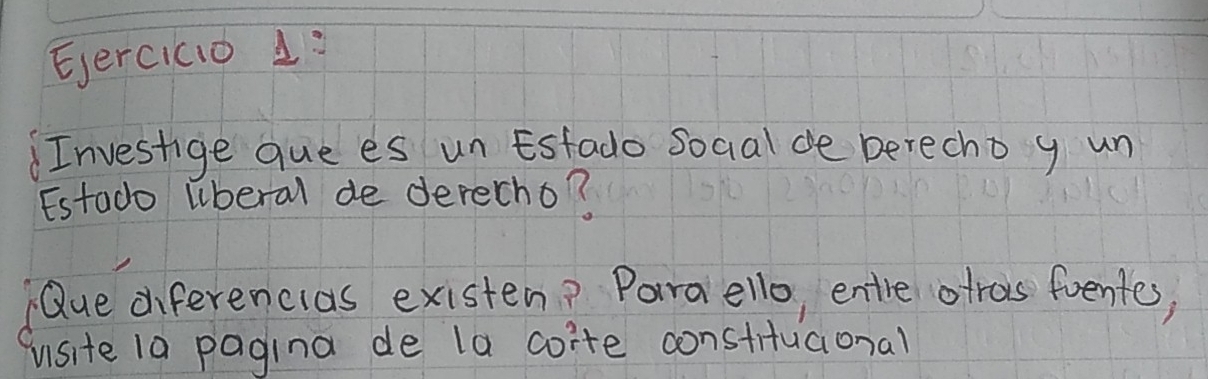 Ejercicio 1:
¿Investige que es un Estado Social de Derecho y un
Estado liberal de derecho?
¿Qué diferencias existen? Para ello, entre otras fuentes,
visite la pagina de la corte constitucional